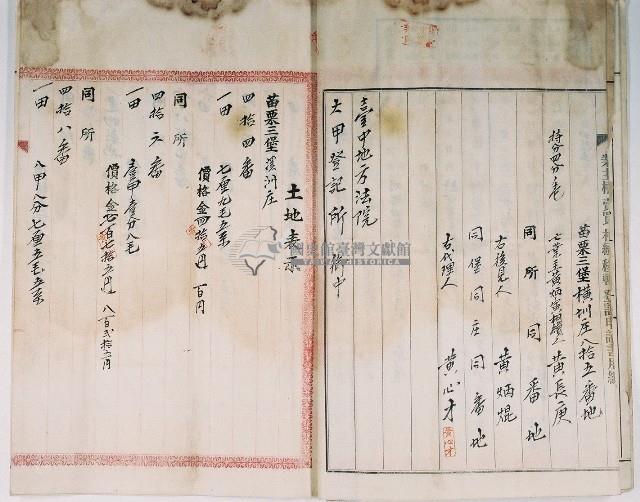 苗栗三堡橫圳庄八拾五番地
持分四分ノ壱
黃長庚
同所同番地
右後見人 黃炳焜
同堡同庄同番地
右代理人 黃心才
黃心才
臺中地方法院
大甲登記所 御中
土地表示
苗栗三堡溪洲庄
四拾四番
一田 七厘九毛五糸
價格金四拾五円 百円
同所
四拾六番
一田 壹甲壹分八毛
價格金七百七拾五円 八百弐拾五円
同所
四拾八番
一田 八甲八分七厘五毛五糸
國史館臺灣文獻館
TAIWAN HISTORICA